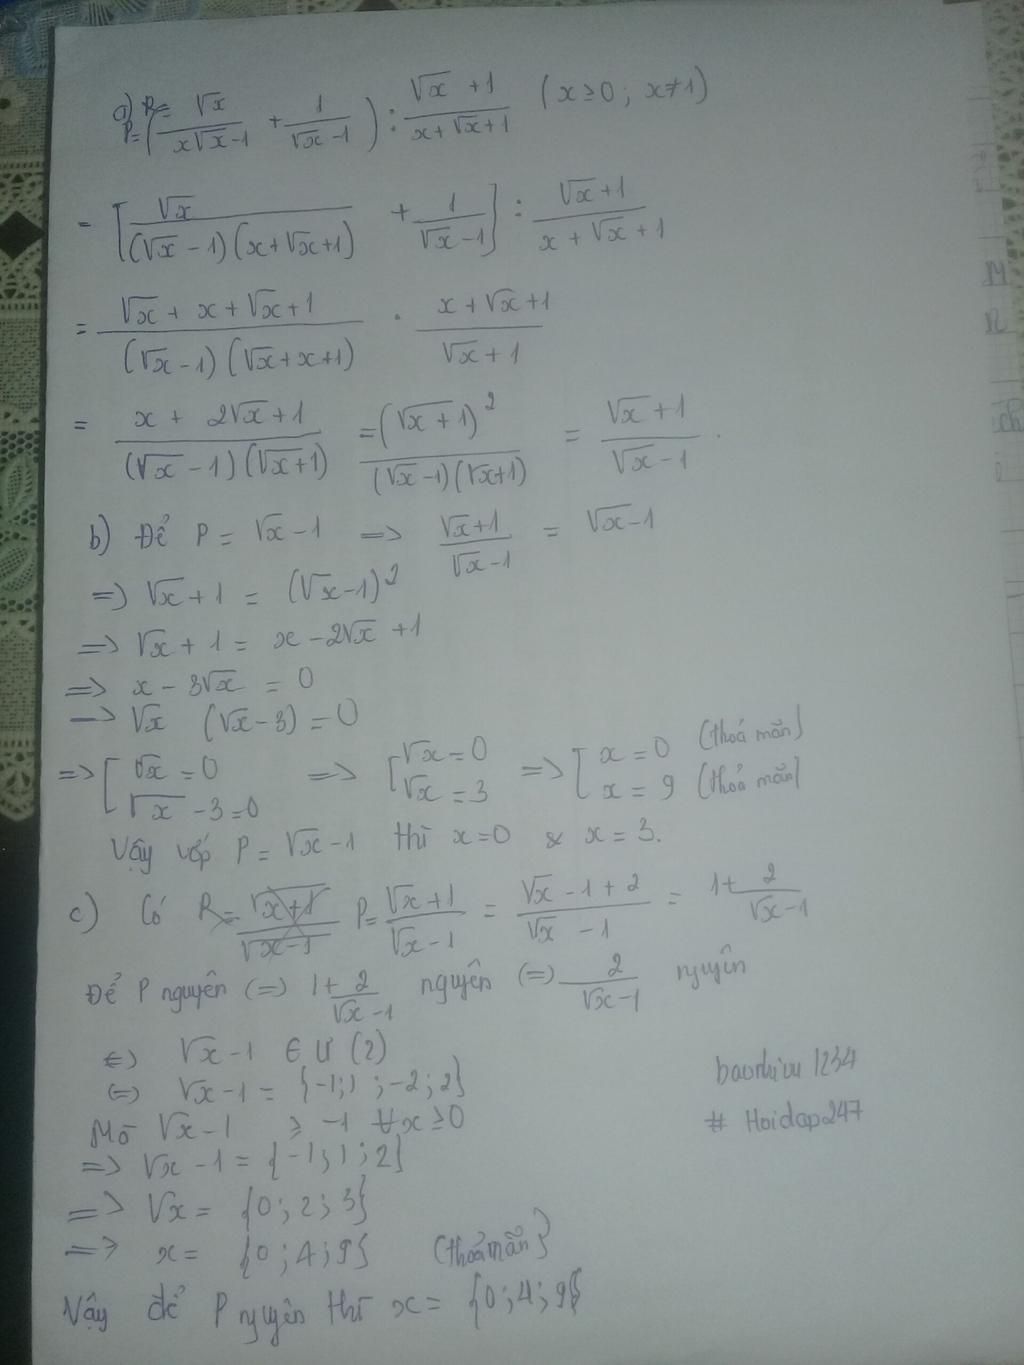 a) P = ( √x / (x√x - 1) + 1 / (√x - 1) ) : (√x + 1) / (x + √x + 1) (x ≥ 0; x ≠ 1)
= [ √x / ((√x - 1)(x + √x + 1)) + 1 / (√x - 1) ] : (√x + 1) / (x + √x + 1)
= (√x + x + √x + 1) / ((√x - 1)(√x + x + 1)) . (x + √x + 1) / (√x + 1)
= (x + 2√x + 1) / ((√x - 1)(√x + 1)) = (√x + 1)² / ((√x - 1)(√x + 1)) = (√x + 1) / (√x - 1).
b) Để P = √x - 1 => (√x + 1) / (√x - 1) = √x - 1
=> √x + 1 = (√x - 1)²
=> √x + 1 = x - 2√x + 1
=> x - 3√x = 0
=> √x (√x - 3) = 0
=> [ √x = 0 => [ √x = 0 => [ x = 0 (thoả mãn)
√x - 3 = 0 √x = 3 x = 9 (thoả mãn)
Vậy với P = √x - 1 thì x = 0 & x = 3.
c) Có P = (√x + 1) / (√x - 1) = (√x - 1 + 2) / (√x - 1) = 1 + 2 / (√x - 1)
Để P nguyên (=) 1 + 2 / (√x - 1) nguyên (=) 2 / (√x - 1) nguyên
(=) √x - 1 ∈ Ư (2)
(=) √x - 1 = {-1; 1; -2; 2}
Mà √x - 1 ≥ -1 ∀x ≥ 0
=> √x - 1 = {-1; 1; 2}
=> √x = {0; 2; 3}
=> x = {0; 4; 9} (thoả mãn)
Vậy để P nguyên thì x = {0; 4; 9}
# Hoidap247